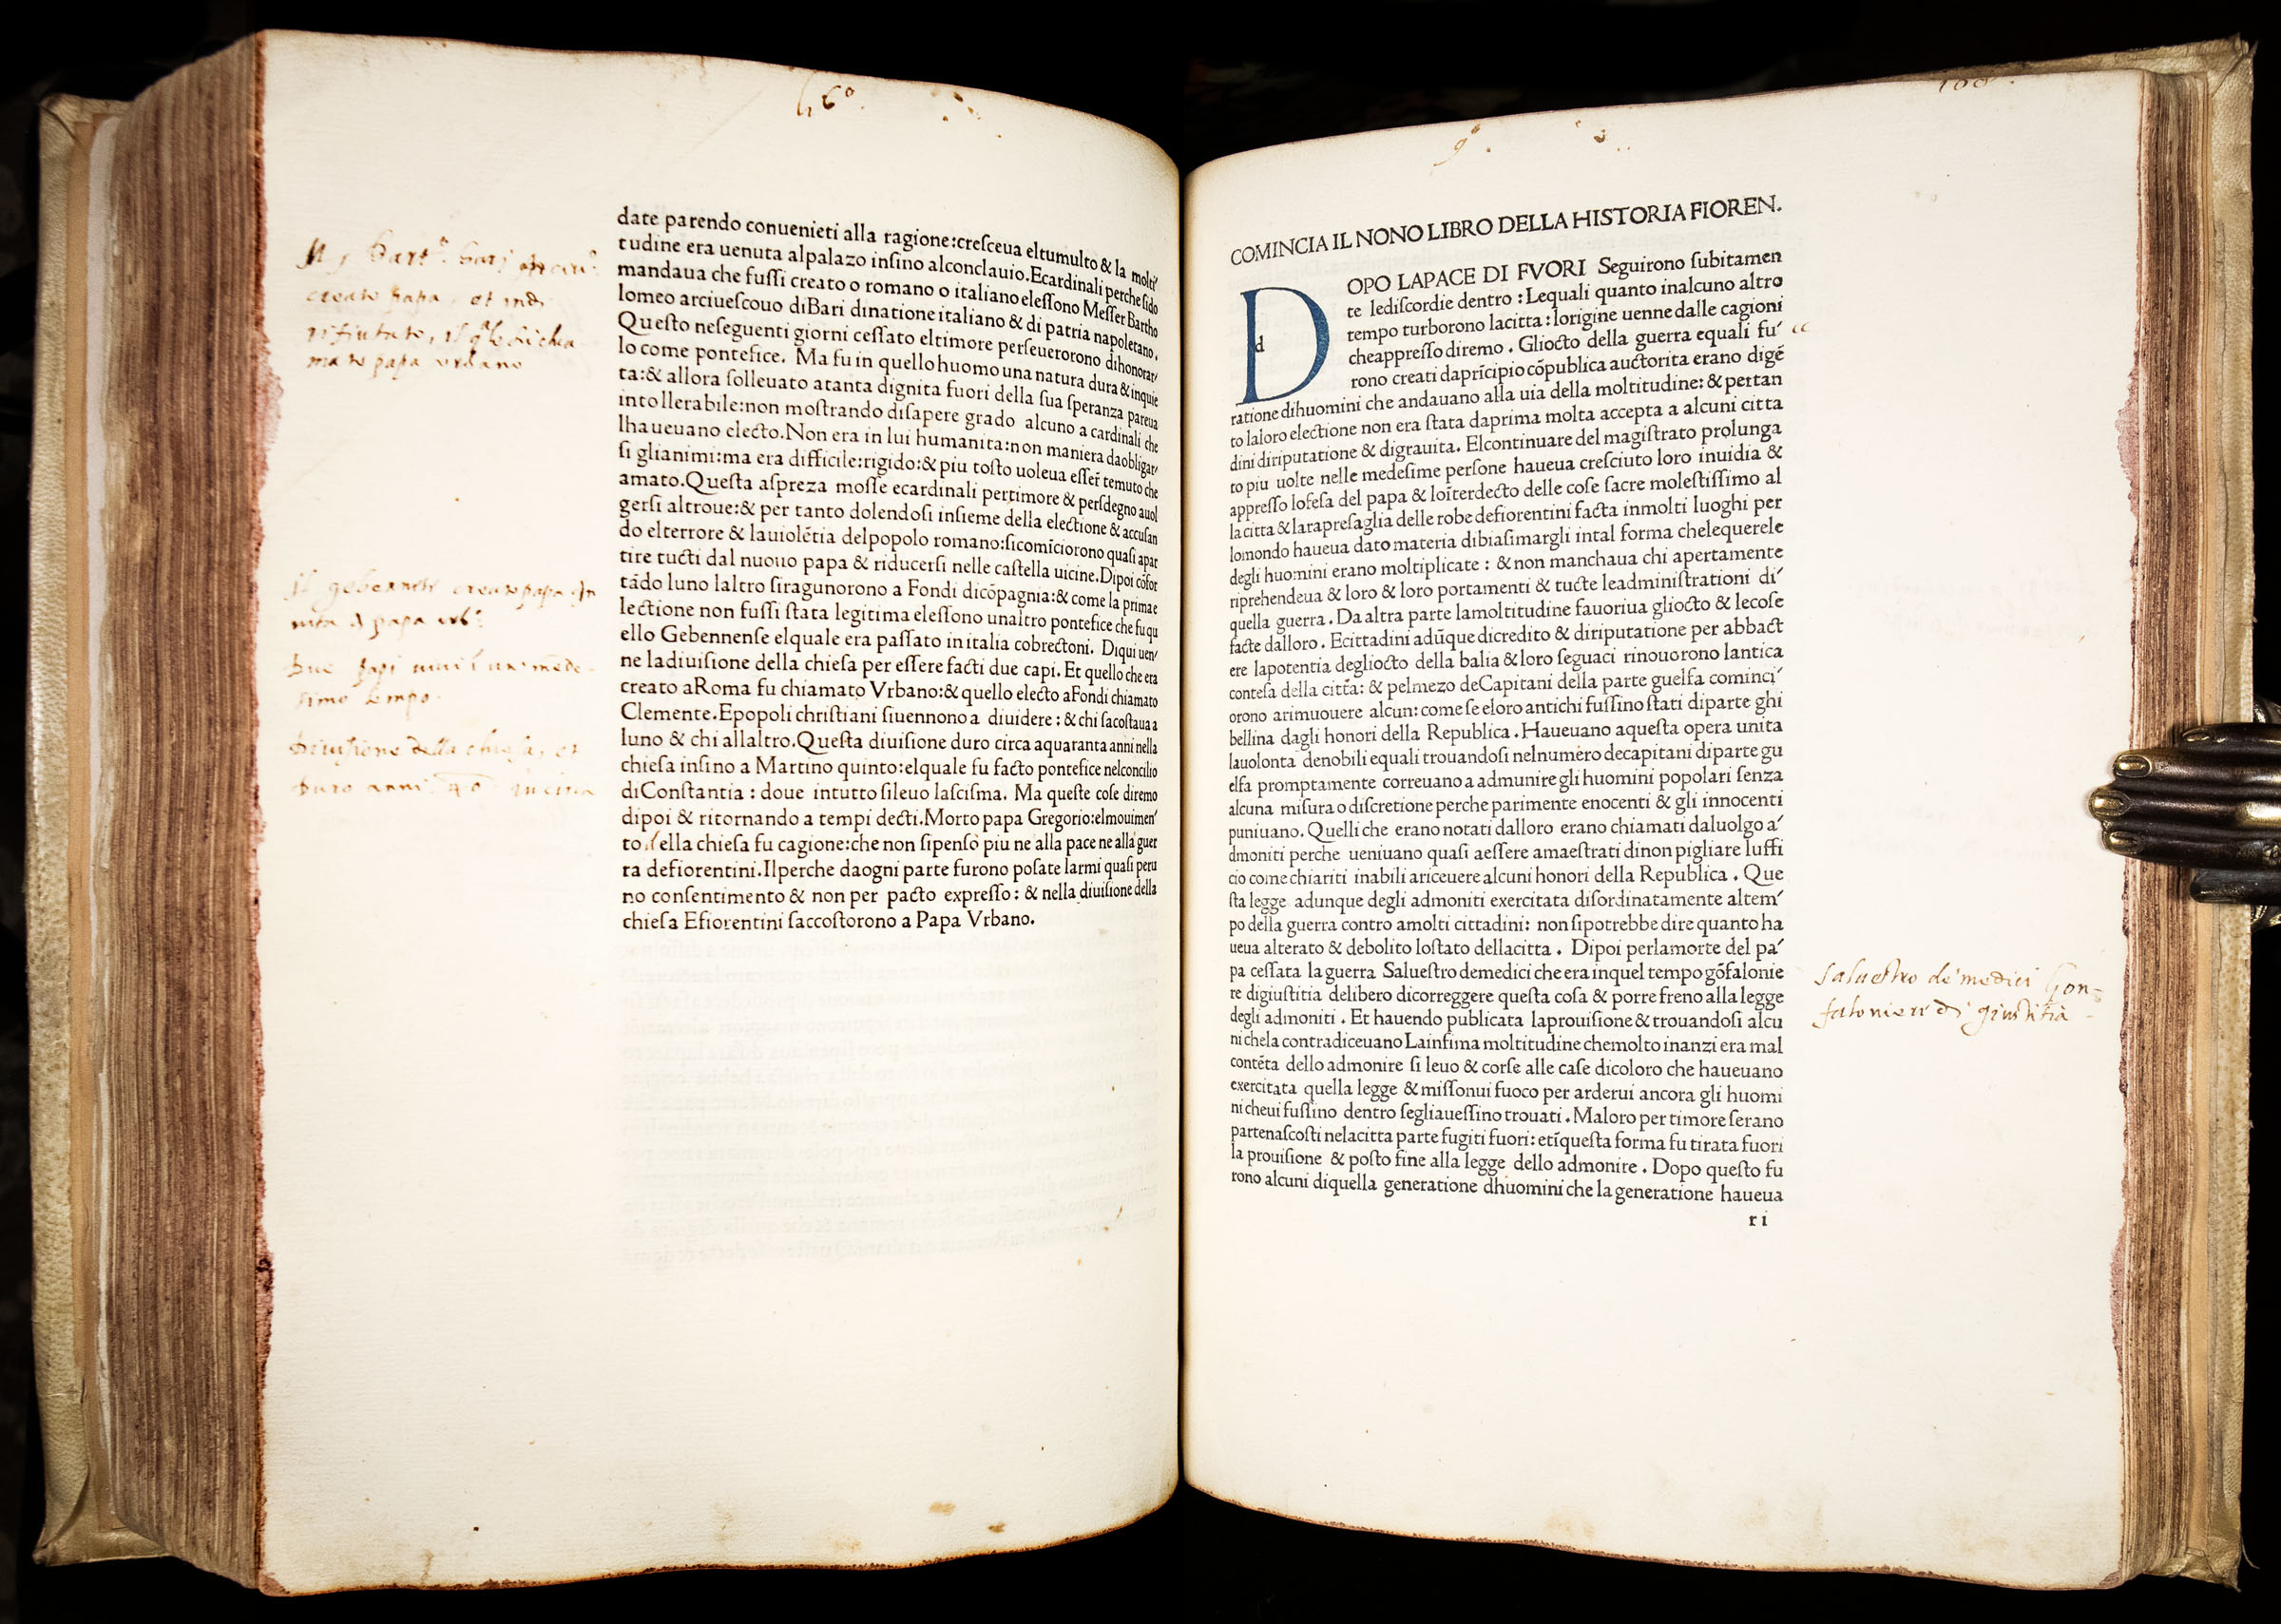 6º
date parendo conuenieti alla ragione:creſceua eltumulto & la molti
tudine era uenuta alpalazo inſino alconclauio.Ecardinali perche ſido
mandaua che fuſſi creato o romano o italiano eleſſono Meſſer Bartho
lomeo arciueſcouo diBari dinatione italiano & di patria napoletano.
Queſto neſeguenti giorni ceſſato eltimore perſeuerorono dihonorar
lo come pontefice. Ma fu in quello huomo una natura dura & inquie
ta:& allora ſolleuato atanta dignita fuori della ſua ſperanza pareua
intollerabile:non moſtrando diſapere grado alcuno a cardinali che
lhaueuano electo.Non era in lui humanita:non maniera daobligar
ſi glianimi:ma era difficile:rigido:& piu toſto uoleua eſſer̃ temuto che
amato.Queſta aſpreza moſſe ecardinali pertimore & perſdegno auol
gerſi altroue:& per tanto dolendoſi inſieme della electione & accuſan
do elterrore & lauiolẽtia delpopolo romano:ſicomĩciorono quaſi apar
tire tucti dal nuouo papa & riducerſi nelle caſtella uicine.Dipoi cõfor
tãdo luno laltro ſiragunorono a Fondi dicõpagnia:& come la prima e
lectione non fuſſi ſtata legitima eleſſono unaltro pontefice che fu qu
ello Gebennenſe elquale era paſſato in italia cobrectoni. Diqui uen
ne ladiuiſione della chieſa per eſſere facti due capi. Et quello che era
creato aRoma fu chiamato Vrbano:& quello electo aFondi chiamato
Clemente.Epopoli chriſtiani ſiuennono a diuidere : & chi ſacoſtaua a
luno & chi allaltro.Queſta diuiſione duro circa aquaranta anni nella
chieſa inſino a Martino quinto:elquale fu facto pontefice nelconcilio
diConſtantia : doue intutto ſileuo laſciſma. Ma queſte coſe diremo
dipoi & ritornando a tempi decti.Morto papa Gregorio:elmouimen
to della chieſa fu cagione:che non ſipenſo piu ne alla pace ne alla guer
ra defiorentini.Ilperche daogni parte furono poſate larmi quaſi peru
no conſentimento & non per pacto expreſſo : & nella diuiſione della
chieſa Efiorentini ſaccoſtorono a Papa Vrbano.
creato papa, et
rifiutato, si chia
mato papa urbano
creato papa In
vita di papa urbº
Due papi un mede-
simo tempo.
Diuisione della chiesa, et
Duro anni 40 in circa
COMINCIA IL NONO LIBRO DELLA HISTORIA FIOREN.
d
DOPO LAPACE DI FVORI Seguirono ſubitamen
te lediſcordie dentro : Lequali quanto inalcuno altro
tempo turborono lacitta : lorigine uenne dalle cagioni
cheappreſſo diremo . Gliocto della guerra equali fu
rono creati daprĩcipio cõpublica auctorita erano digẽ
ratione dihuomini che andauano alla uia della moltitudine: & pertan
to laloro electione non era ſtata daprima molta accepta a alcuni citta
dini diriputatione & digrauita. Elcontinuare del magiſtrato prolunga
to piu uolte nelle medeſime perſone haueua creſciuto loro inuidia &
appreſſo lofeſa del papa & loĩterdecto delle coſe ſacre moleſtiſſimo al
la citta & larapreſaglia delle robe defiorentini facta inmolti luoghi per
lomondo haueua dato materia dibiaſimargli intal forma chelequerele
degli huomini erano moltiplicate : & non manchaua chi apertamente
riprehendeua & loro & loro portamenti & tucte leadminiſtrationi di
quella guerra . Da altra parte lamoltitudine fauoriua gliocto & lecoſe
facte dalloro . Ecittadini adũque dicredito & diriputatione per abbact
ere lapotentia degliocto della balia & loro ſeguaci rinouorono lantica
conteſa della citta: & pelmezo deCapitani della parte guelfa cominci
orono arimuouere alcun: come ſe eloro antichi fuſſino ſtati diparte ghi
bellina dagli honori della Republica . Haueuano aqueſta opera unita
lauolonta denobili equali trouandoſi nelnumero decapitani diparte gu
elfa promptamente correuano a admunire gli huomini popolari ſenza
alcuna miſura o diſcretione perche parimente enocenti & gli innocenti
puniuano. Quelli che erano notati dalloro erano chiamati daluolgo a
dmoniti perche ueniuano quaſi aeſſere amaeſtrati dinon pigliare luffi
cio come chiariti inabili ariceuere alcuni honori della Republica . Que
ſta legge adunque degli admoniti exercitata diſordinatamente altem
po della guerra contro amolti cittadini: non ſipotrebbe dire quanto ha
ueua alterato & debolito loſtato dellacitta . Dipoi perlamorte del pa
pa ceſſata la guerra Salueſtro demedici che era inquel tempo gõfalonie
re digiuſtitia delibero dicorreggere queſta coſa & porre freno alla legge
degli admoniti . Et hauendo publicata laprouiſione & trouandoſi alcu
ni chela contradiceuano Lainfima moltitudine chemolto inanzi era mal
contẽta dello admonire ſi leuo & corſe alle caſe dicoloro che haueuano
exercitata quella legge & miſſonui fuoco per arderui ancora gli huomi
ni cheui fuſſino dentro ſegliaueſſino trouati . Maloro per timore ſerano
partenaſcoſti nelacitta parte fugiti fuori: etĩqueſta forma fu tirata fuori
la prouiſione & poſto fine alla legge dello admonire . Dopo queſto fu
rono alcuni diquella generatione dhuomini che la generatione haueua
r i
Saluestro de medici Gon-
falonieri di giustitia